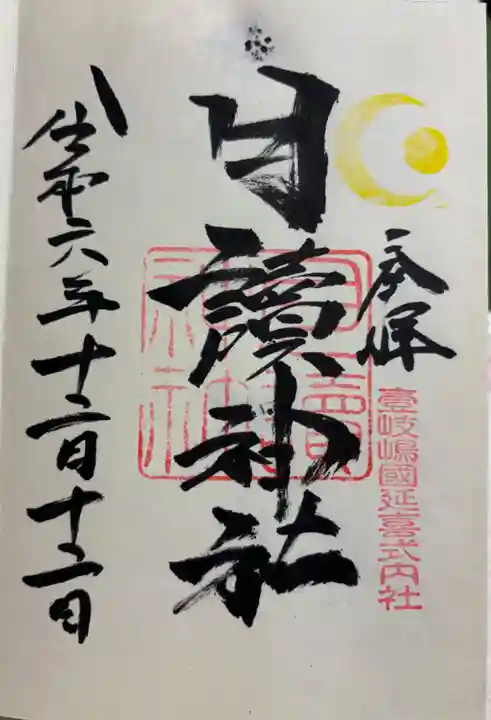 奉拝
壹岐嶋國延喜式内社
月讀神社
月讀
神社
令和六年十二月十二日